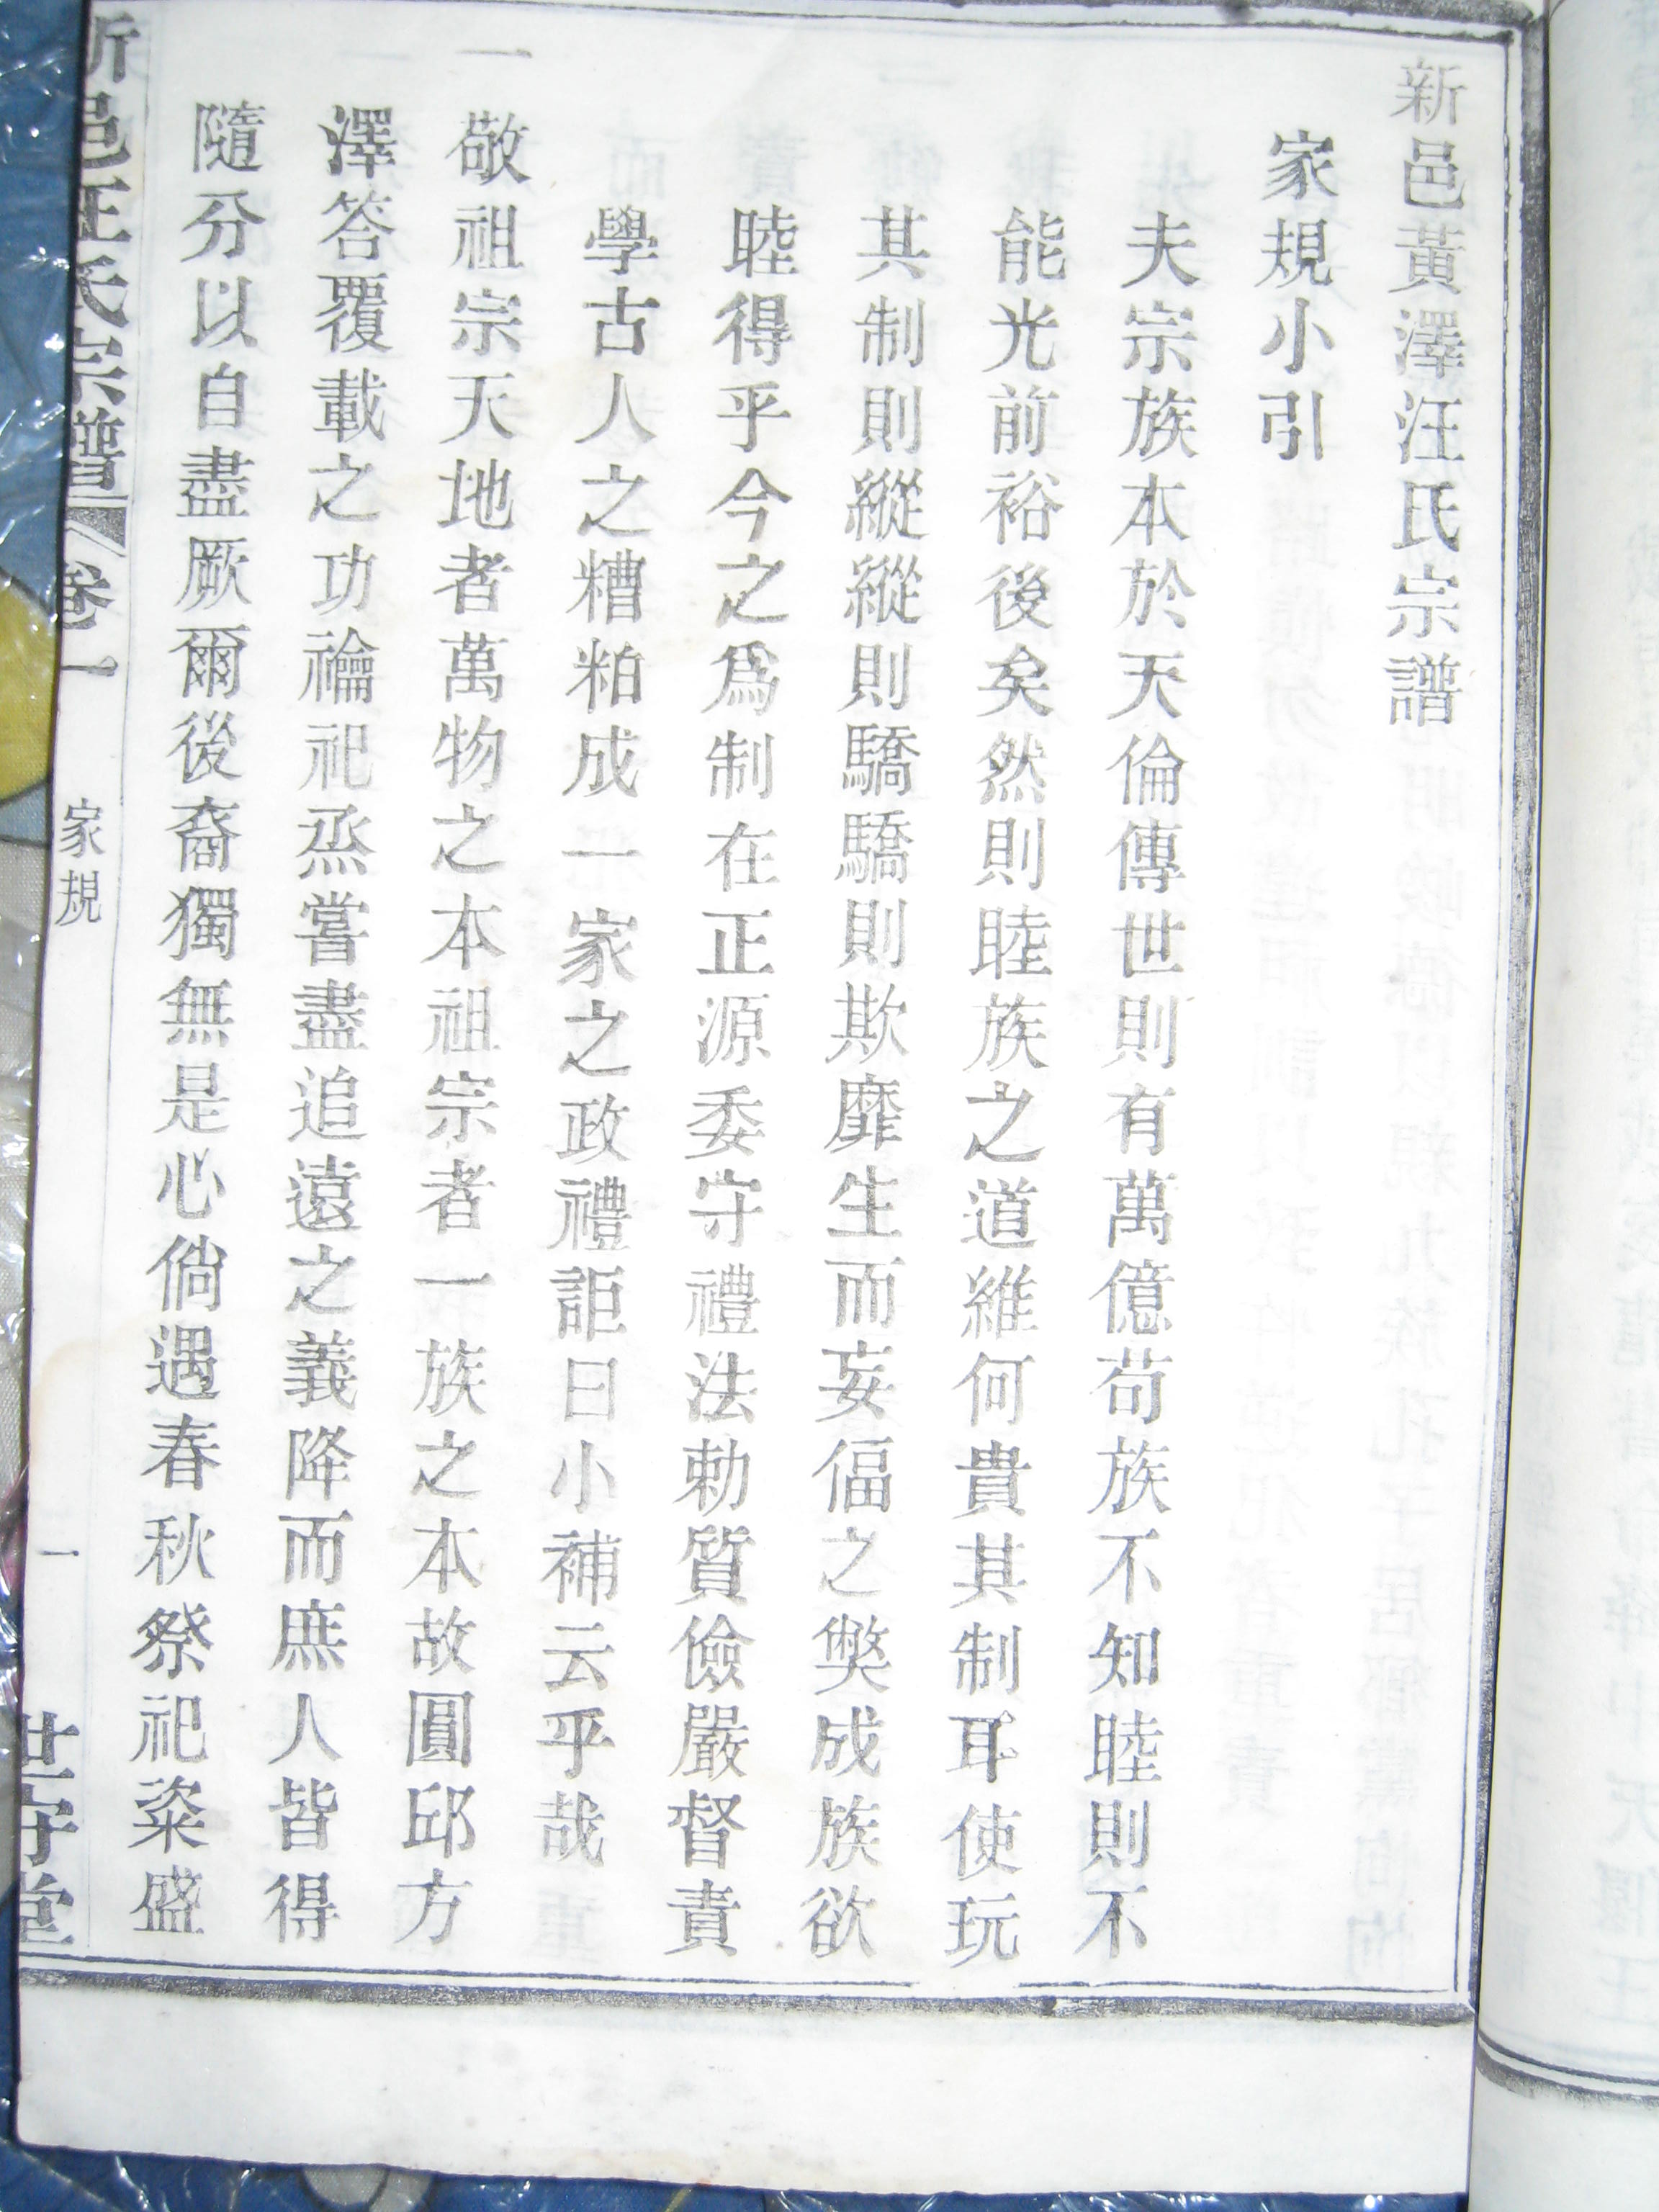 新邑黃澤汪氏宗譜
家規小引
夫宗族本於天倫傳世則有萬億苟族不知睦則不
能光前裕後矣然則睦族之道維何貴其制耳使玩
其制則縱縱則驕驕則欺靡生而妄偪之獘成族欲
睦得乎今之爲制在正源委守禮法勅質儉嚴督責
學古人之糟粕成一家之政禮詎曰小補云乎哉
一
敬祖宗天地者萬物之本祖宗者一族之本故圓邱方
澤答覆載之功禴祀烝嘗盡追遠之義降而庶人皆得
隨分以自盡厥爾後裔獨無是心倘遇春秋祭祀粢盛
新邑汪氏宗譜 卷一 家規 一 世守堂